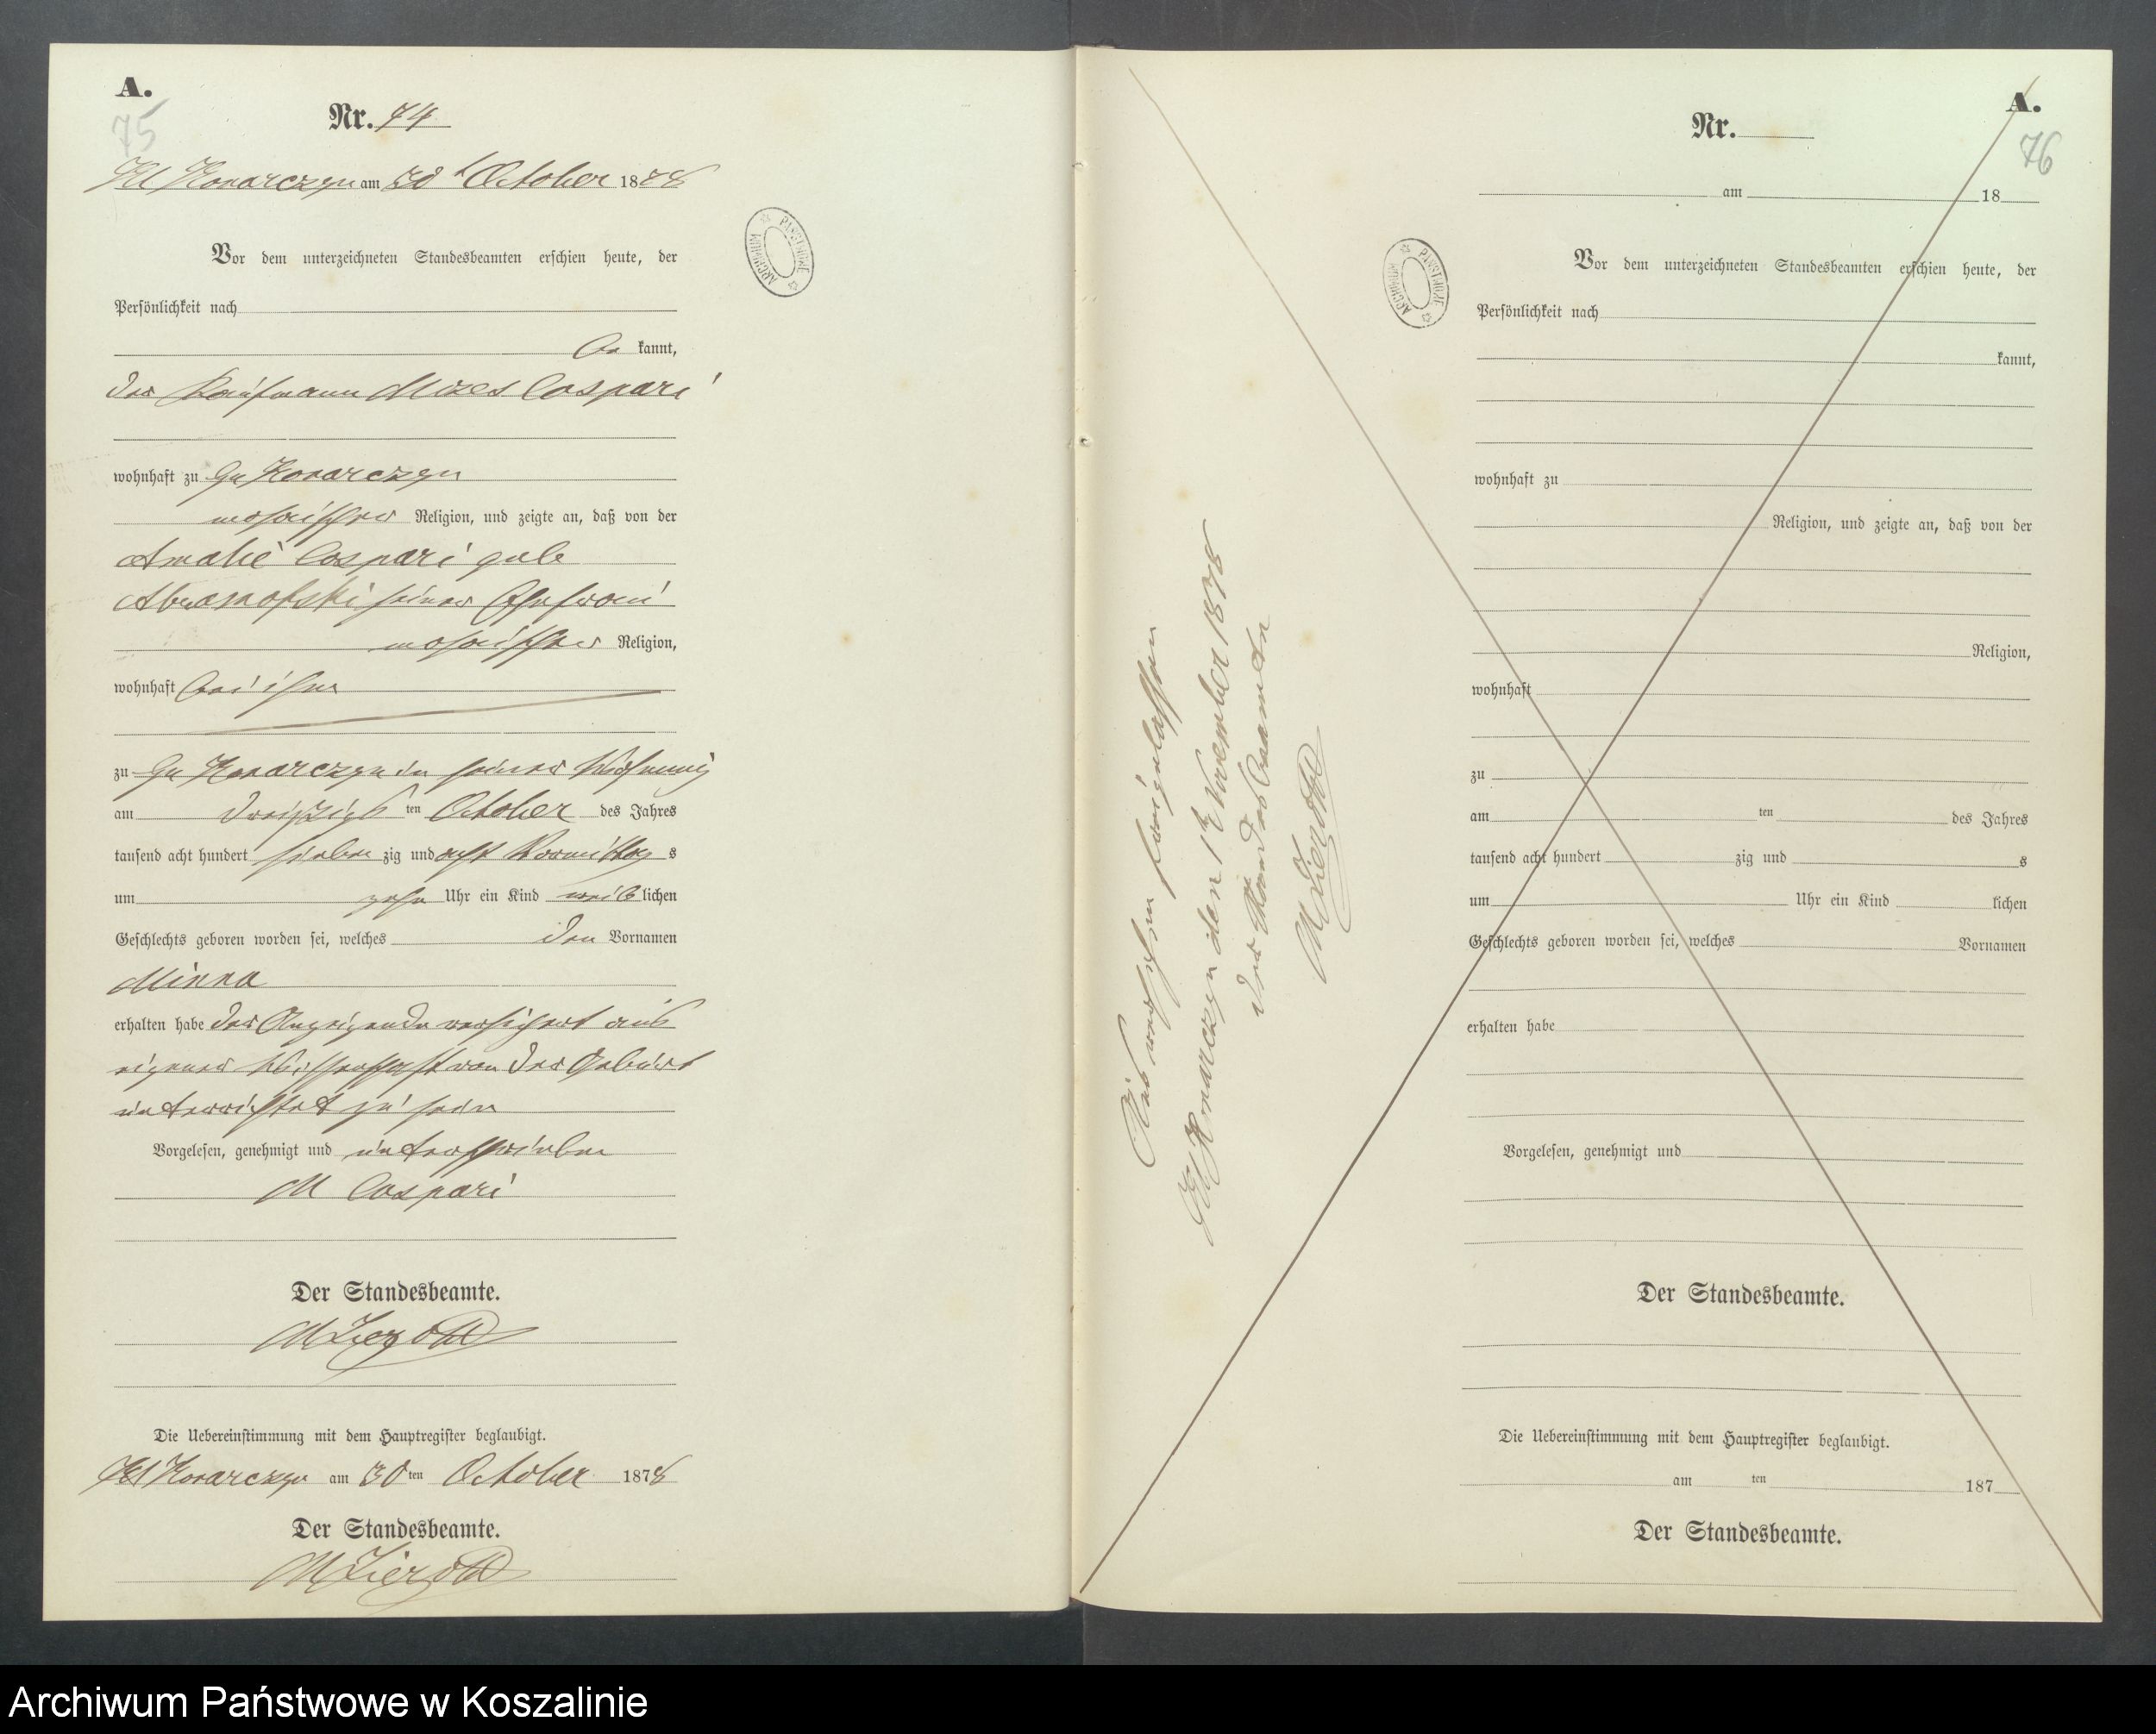 A.
75
Nr. 74
Kl Konarczyn am 30t October 1878
Vor dem unterzeichneten Standesbeamten erschien heute, der
Persönlichkeit nach
be kannt,
der Kaufmann Mozes Caspari
wohnhaft zu Gr Konarczyn
mosaischer Religion, und zeigte an, daß von der
Amalie Caspari geb
Abramofski seiner Ehefrau
mosaischer Religion,
wohnhaft bei ihm
zu Gr Konarczyn in seiner Wohnung
am dreißigs ten October des Jahres
tausend acht hundert sieben zig und acht Vormittag s
um zehn Uhr ein Kind weib lichen
Geschlechts geboren worden sei, welches den Vornamen
Minna
erhalten habe der Anzeigende versichert aus
eigener Wissenschaft von der Geburt
unterrichtet zu sein
Vorgelesen, genehmigt und unterschrieben
M Caspari
Der Standesbeamte.
Die Uebereinstimmung mit dem Hauptregister beglaubigt.
Kl Konarczyn am 30 ten October 1878
Der Standesbeamte.
ARCHIWUM PAŃSTWOWE
A.
76
Nr.
am 18
Vor dem unterzeichneten Standesbeamten erschien heute, der
Persönlichkeit nach
kannt,
wohnhaft zu
Religion, und zeigte an, daß von der
Religion,
wohnhaft
zu
am ten des Jahres
tausend acht hundert zig und s
um Uhr ein Kind lichen
Geschlechts geboren worden sei, welches Vornamen
erhalten habe
Vorgelesen, genehmigt und
Der Standesbeamte.
Die Uebereinstimmung mit dem Hauptregister beglaubigt.
am ten 187
Der Standesbeamte.
ARCHIWUM PAŃSTWOWE
Aus versehen freigelassen
Kl Konarczyn den 1t November 1878
der Standesbeamte
Archiwum Państwowe w Koszalinie